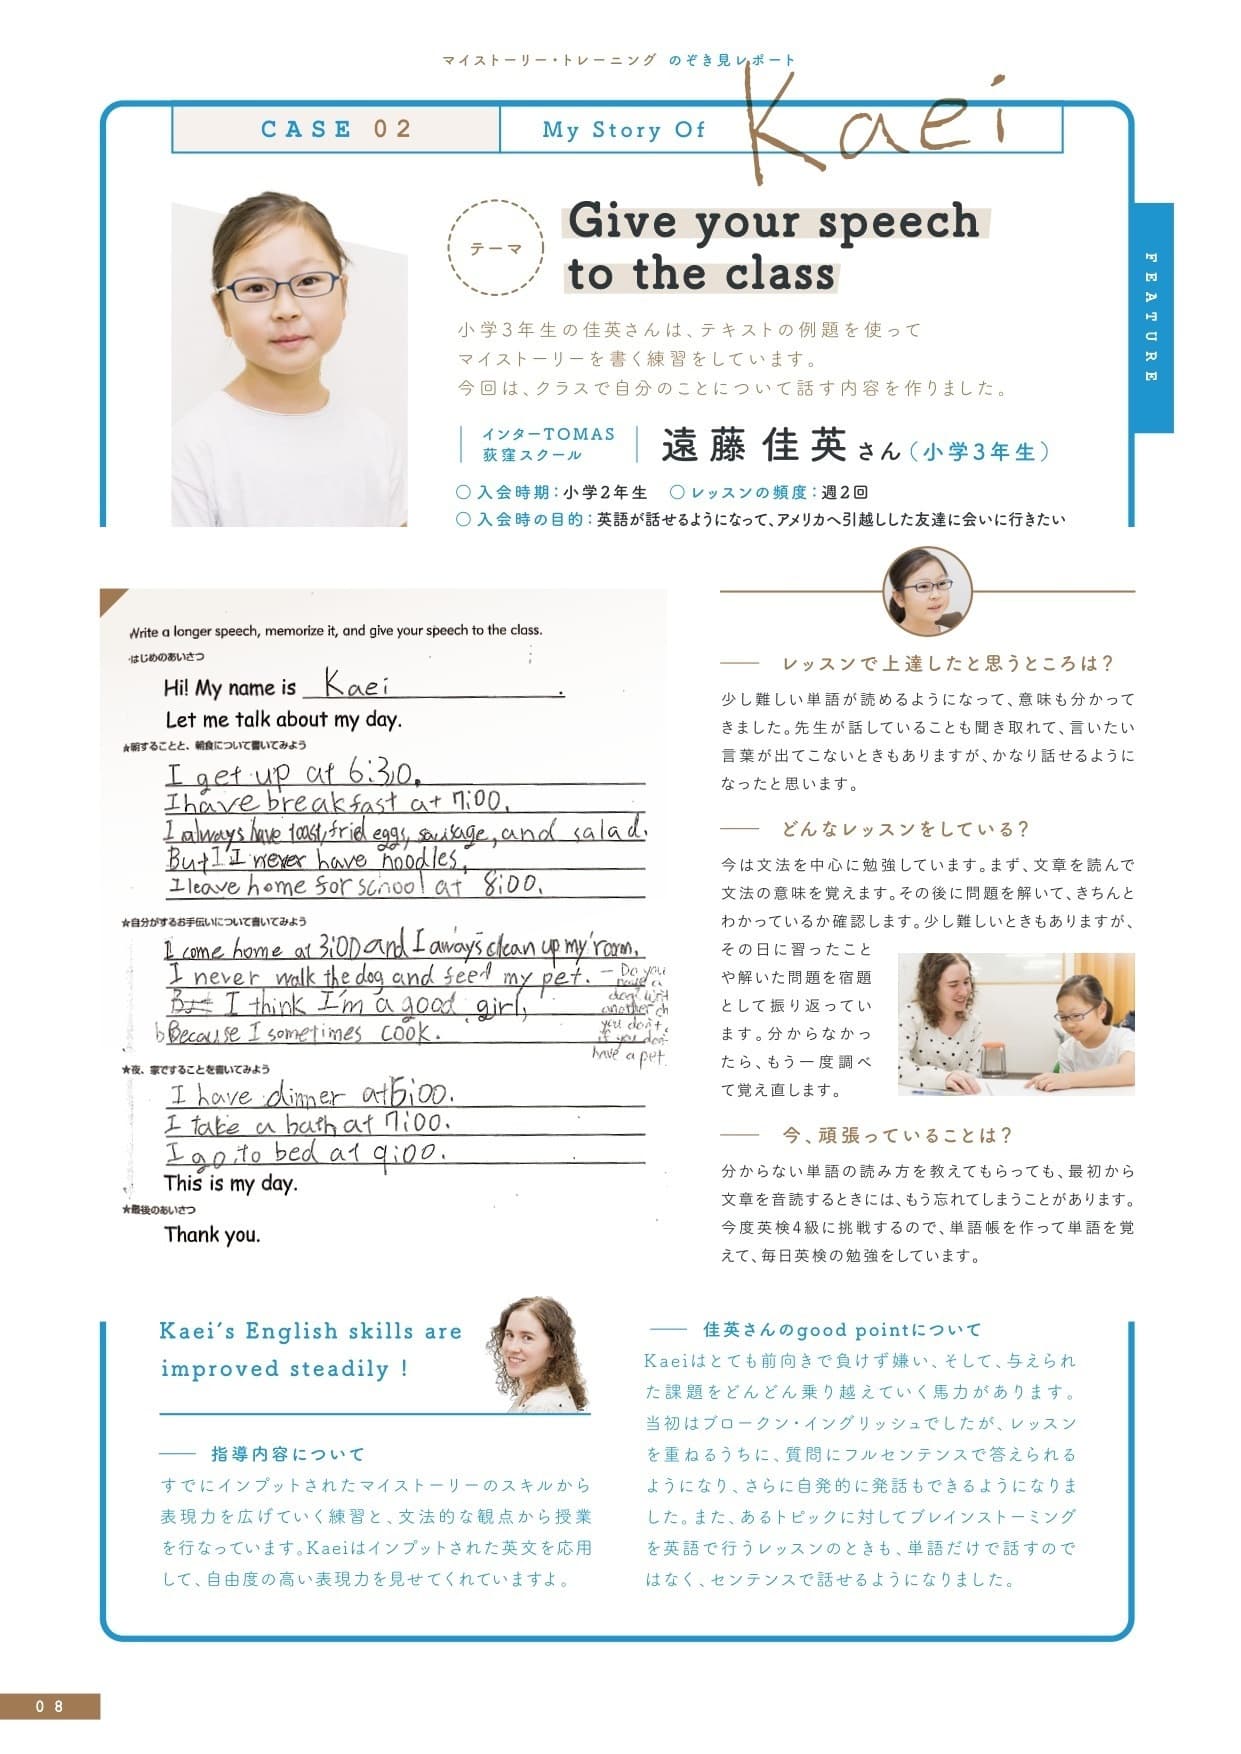 マイストーリー・トレーニング のぞき見レポート
CASE 02
My Story Of Kaei
FEATURE
テーマ
Give your speech
to the class
小学3年生の佳英さんは、テキストの例題を使って
マイストーリーを書く練習をしています。
今回は、クラスで自分のことについて話す内容を作りました。
インターTOMAS
荻窪スクール
遠藤 佳英 さん（小学3年生）
○ 入会時期：小学2年生 ○ レッスンの頻度：週2回
○ 入会時の目的：英語が話せるようになって、アメリカへ引越しした友達に会いに行きたい
Write a longer speech, memorize it, and give your speech to the class.
・はじめのあいさつ
Hi! My name is Kaei.
Let me talk about my day.
★朝することと、朝食について書いてみよう
I get up at 6:30.
I have breakfast at 7:00.
I always have toast, fried eggs, sausage, and salad.
But I never have noodles.
I leave home for school at 8:00.
★自分がするお手伝いについて書いてみよう
I come home at 3:00 and I aways clean up my room.
I never walk the dog and feed my pet.
But I think I'm a good girl,
Because I sometimes cook.
– Do you
have a
another ch
you don't
if you don
have a pet.
★夜、家ですることを書いてみよう
I have dinner at 6:00.
I take a bath at 7:00.
I go to bed at 9:00.
This is my day.
★最後のあいさつ
Thank you.
レッスンで上達したと思うところは？
少し難しい単語が読めるようになって、意味も分かって
きました。先生が話していることも聞き取れて、言いたい
言葉が出てこないときもありますが、かなり話せるように
なったと思います。
どんなレッスンをしている？
今は文法を中心に勉強しています。まず、文章を読んで
文法の意味を覚えます。その後に問題を解いて、きちんと
わかっているか確認します。少し難しいときもありますが、
その日に習ったこと
や解いた問題を宿題
として振り返ってい
ます。分からなかっ
たら、もう一度調べ
て覚え直します。
今、頑張っていることは？
分からない単語の読み方を教えてもらっても、最初から
文章を音読するときには、もう忘れてしまうことがあります。
今度英検4級に挑戦するので、単語帳を作って単語を覚
えて、毎日英検の勉強をしています。
Kaei's English skills are
improved steadily !
指導内容について
すでにインプットされたマイストーリーのスキルから
表現力を広げていく練習と、文法的な観点から授業
を行なっています。Kaeiはインプットされた英文を応用
して、自由度の高い表現力を見せてくれていますよ。
佳英さんのgood pointについて
Kaeiはとても前向きで負けず嫌い、そして、与えられ
た課題をどんどん乗り越えていく馬力があります。
当初はブロークン・イングリッシュでしたが、レッスン
を重ねるうちに、質問にフルセンテンスで答えられる
ようになり、さらに自発的に発話もできるようになりま
した。また、あるトピックに対してブレインストーミング
を英語で行うレッスンのときも、単語だけで話すので
はなく、センテンスで話せるようになりました。
08